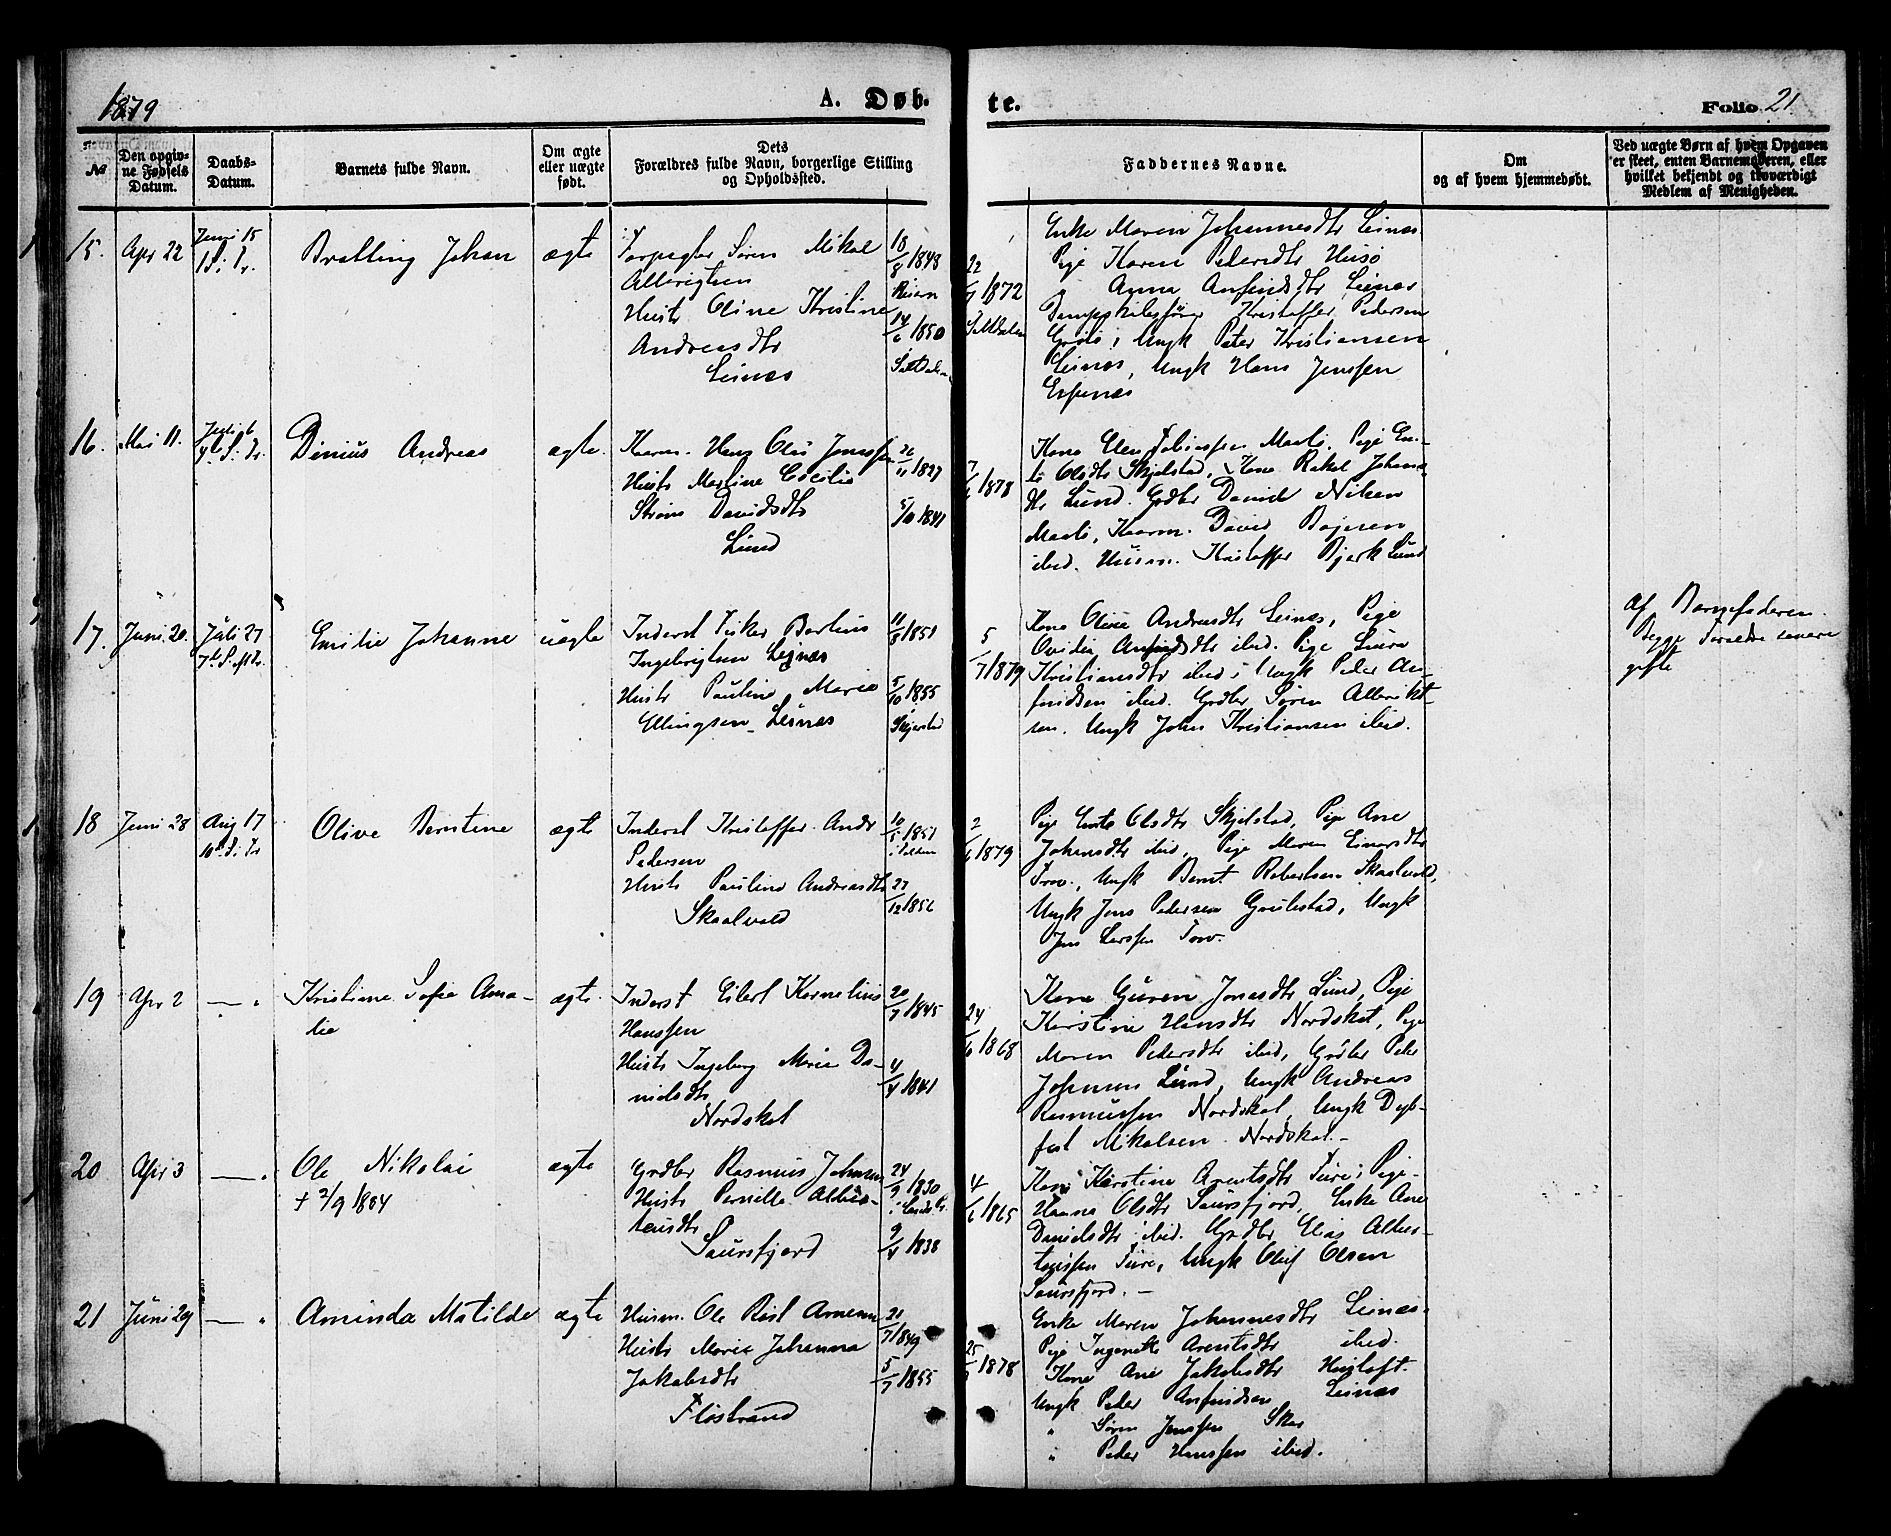 1879
A. Døb-
te.
Folio 21
№
Den opgiv-
ne Fødsels
Datum.
Daabs-
Datum.
Barnets fulde Navn.
Om ægte
eller uægte
født.
Dets
Forældres fulde Navn, borgerlige Stilling
og Opholdssted.
Faddernes Navne.
Om
og af hvem hjemmedøbt.
Ved uægte Børn af hvem Opgaven
er skeet, enten Barnemoderen, eller
hvilket bekjendt og troværdigt
Medlem af Menigheden.
15. Apr 22 Juni 15
Johan ægte
Søren Mikal
Albrigtsen
Hust. Oline Kristine
Andreasdtr
Leinæs
18/8 1848
14/6 1850
Saltdalen
1872
Saltdalen
Enke Maren Johannesdtr Leinæs
Pige Karen Pedersdtr Husø
Anna Anfindsdtr Leinæs
Dampskibsfører Kristoffer Pedersen
Ungk Peter Kristiansen
Leinæs, Ungk Hans Jenssen
Espenæs
16. Mai 11. Juli 6
Dinius Andreas ægte.
Kaarm. Hans Olai Jonssen
Hust. Martine Cecilie
Strøm Davidsdtr
Lund
5/10 1841
1878
Kone Elen Maalø. Pige
Olsdtr Skjelstad, Kone Rakel Johans-
dtr Lund. Grdbr Daniel Nilsen
Maalø, Kaarm. David Bojesen
ibid. Husm. Kristoffer Bjerk Lund
17. Juni 20. Juli 27
7de S. eft Tr.
Emilie Johanne uægte
Inderst Fisker Bertius
Ingebrigtsen Leinæs
Hust. Pauline Marie
Ellingsen Leinæs
11/8 1851
5/10 1855
Skjerstad
5/7 1879
Kone Olive Andreasdtr Leinæs, Pige
Ovidia Anfindsdtr ibid. Pige
Kristiansdtr ibid; Ungk Peder An-
findsen ibid. Grdbr Søren Albrikt-
sen. Ungk John Kristiansen ibid.
Af Barnefaderen.
Begge Forældre senere
gifte
18 Juni 28 Aug 17
10de S. e. Tr
Olive Berntine ægte
Inderst Kristoffer Andr
Pedersen
Hust. Pauline Andreasdtr
Skaalvold
10/5 1851
27/12 1856
1879
Pige Olsdtr Skjelstad, Pige Ane
Johansdtr ibid, Pige Maren Einarsdtr
Tvov, Ungk Bernt Robertsen Skaalvold,
Ungk Jens Pedersen Ungk
Jens Larssen Tvov.
19 Apr 2 — "
Kristiane Sofie Ama-
lie
ægte.
Inderst Eilert Kornelius
Hanssen
Hust. Ingeborg Marie Da-
nielsdtr
Nordskot
20/7 1845
4/4 1841
1868
Kone Guren Jonasdtr Lund, Pige
Kirstine Hansdtr Nordskot, Pige
Maren Pedersdtr ibid, Grdbr Peder
Johnsen Lund, Ungk Andreas
Rasmussen Nordskot, Ungk
Mikalsen Nordskot.
20 Apr 3 — "
Ole Nikolai
† 2/9 1884
ægte
Grdbr Rasmus Johnsen
Hust. Pernille Albus-
tensdtr
Saursfjord
24/9 1830
9/4 1838
4/6 1865
Kone Karstine Arentsdtr Pige
Hanna Olsdtr Saursfjord, Enke Ane
Danielsdtr ibid. Grdbr Elias Albus-
Ungk Oluf Olsen
Saursfjord. —
21 Juni 29 — "
Aminda Matilde ægte
Husm. Ole Røst Arnesen
Hust. Marie Johanna
Jakobsdtr
Fløstrand
21/7 1849
5/7 1855
1878
Enke Maren Johannesdtr Leinæs.
Pige Arentsdtr ibid.
Kone Ane Jakobsdtr
Ungk Peder Anfindsen Leinæs
" Søren Jenssen
" Peder Hanssen ibid.